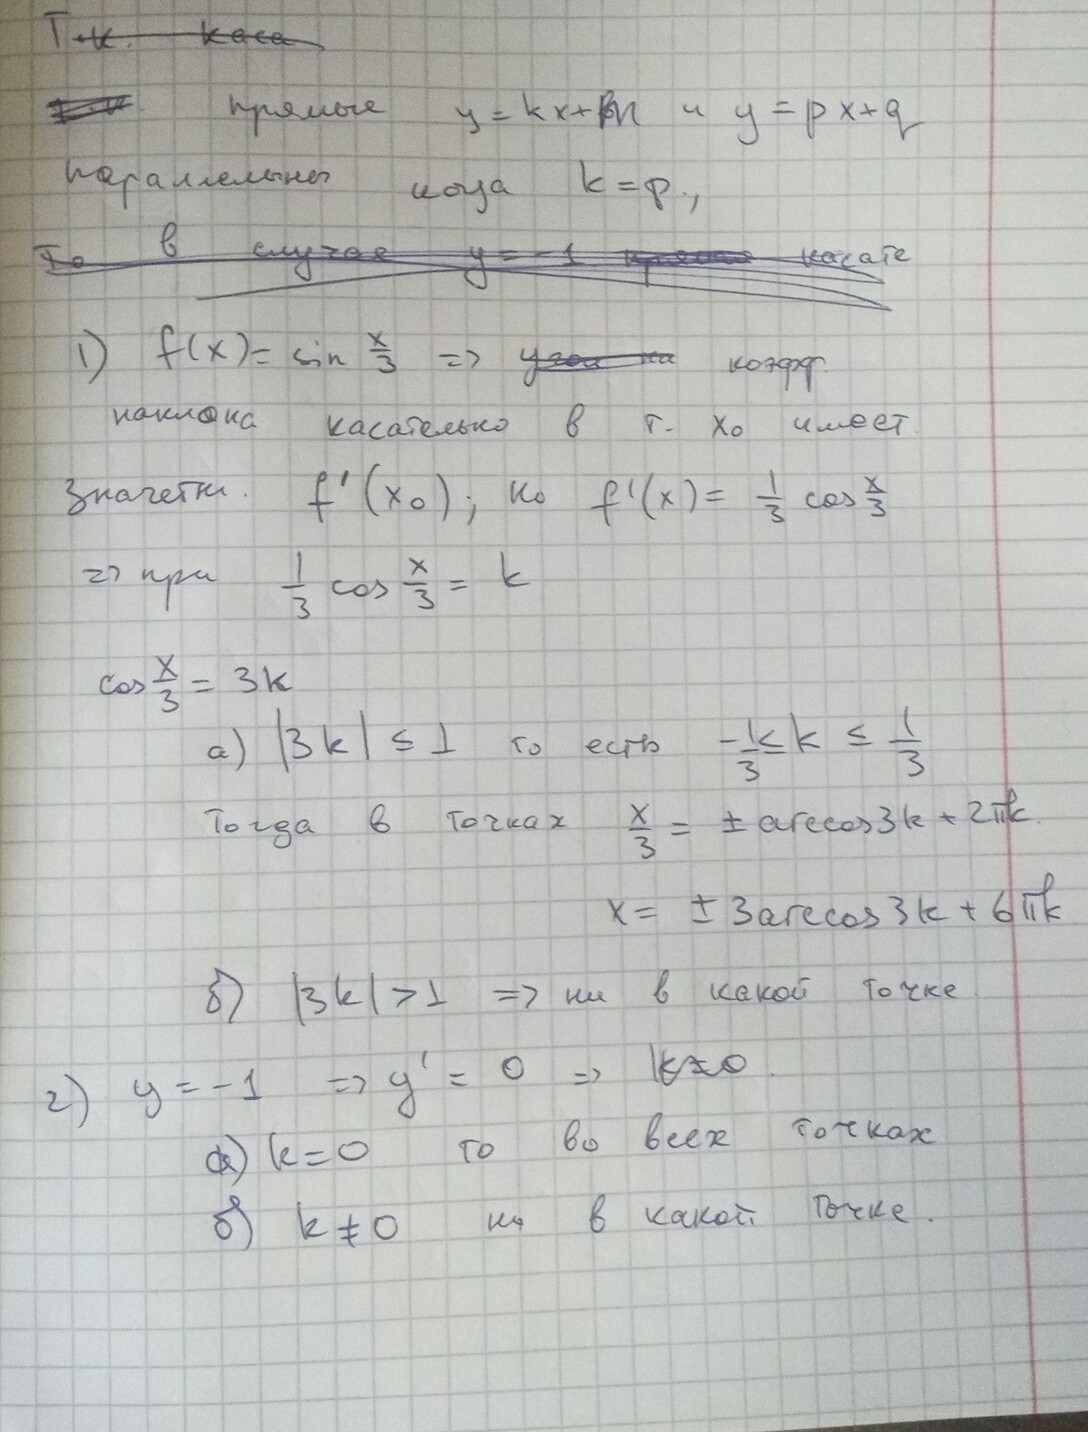 Т.к. каса
прямые y = kx + m и y = px + q
параллельны когда k = p.,
То в случае y = -1 касате
1) f(x) = sin x/3 => угол на коэфф.
наклона касательно в т. x₀ имеет
значетн. f'(x₀); но f'(x) = 1/3 cos x/3
=> при 1/3 cos x/3 = k
cos x/3 = 3k
а) |3k| ≤ 1 то есть -1/3 ≤ k ≤ 1/3
Тогда в точках x/3 = ± arccos 3k + 2πk
x = ± 3 arccos 3k + 6πk
б) |3k| > 1 => ни в какой точке
2) y = -1 => y' = 0 => k = 0.
а) k = 0 то во всех точках
б) k ≠ 0 ни в какой точке.